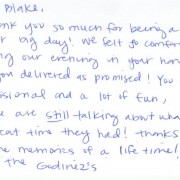 Blake,
nk you so much for being a
r big day! We felt so comfor
ing our evening in your han
ou delivered as promised! You
ssional and a lot of fun,
e are still talking about what
eat time they had! Thanks
he memories of a life time!
the Godinez's